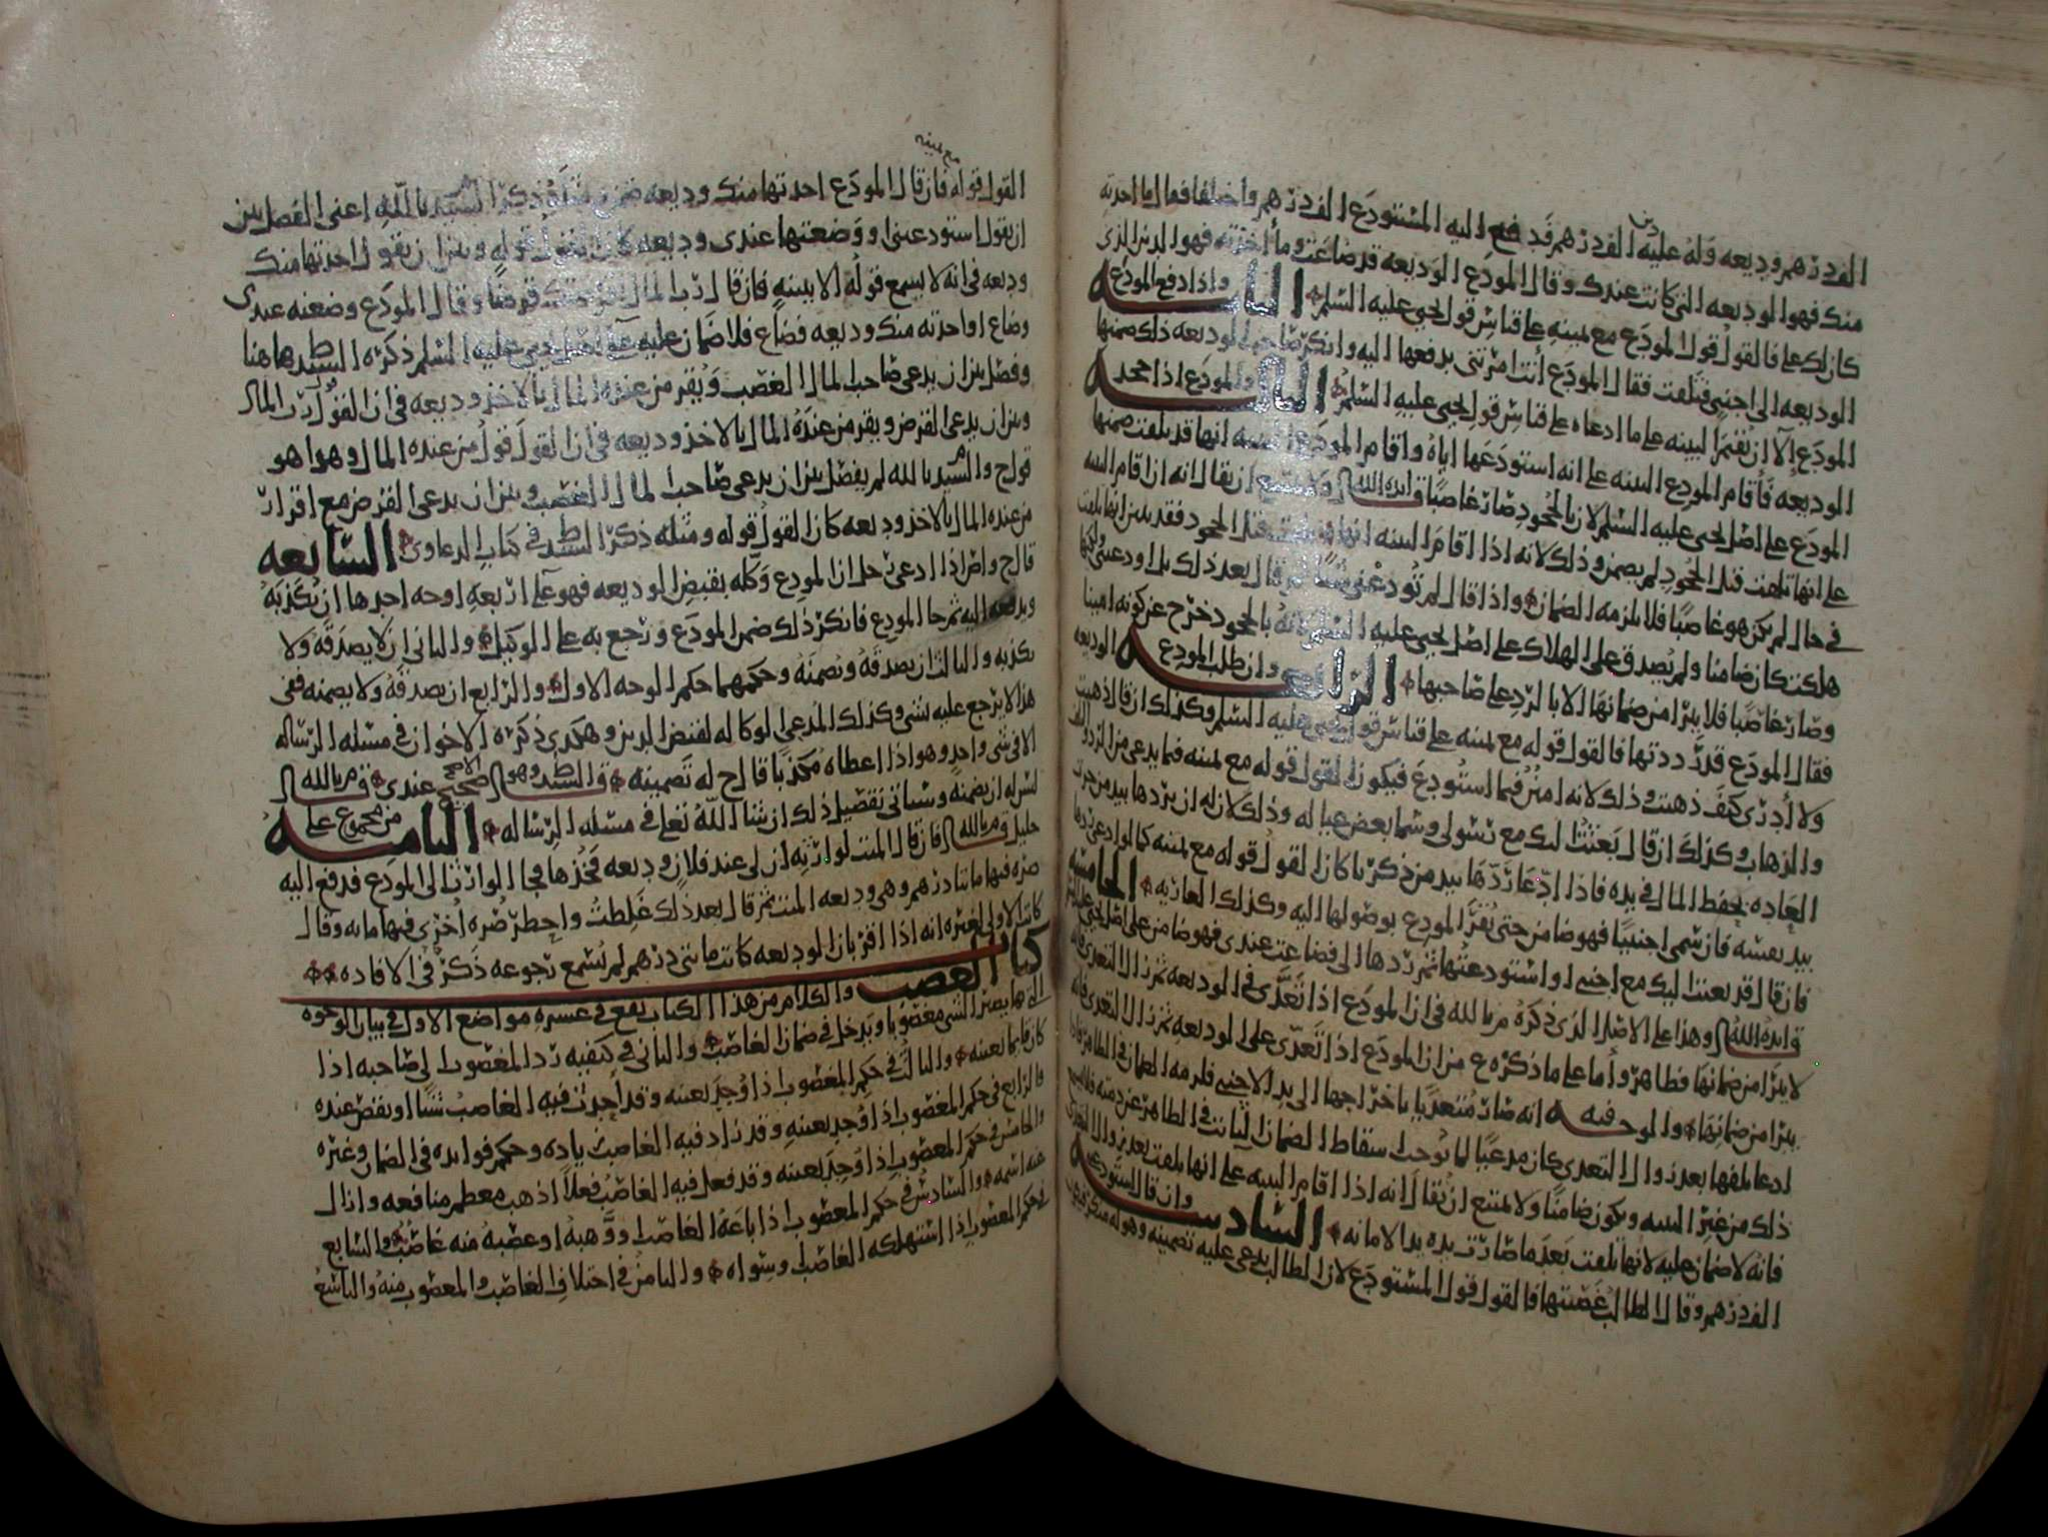 الف درهم وديعه وله عليه الف درهم دين فدفع اليه المستودع الف درهم واختلفا فقال ما اخذته
منك فهو الوديعه التي كانت عندك وقال المودع الوديعه قد ضاعت وما اخذته فهو الدين الذي
كان لك علي فالقول قول المودع مع يمينه على قياس قول يحيى عليه السلم الثانيه واذا دفع المودع
الوديعه الى اجنبي فتلفت فقال المودع أنت امرتني بدفعها اليه وانكر صاحب الوديعه ذلك ضمنها
المودع إلا ان يقيم البينه على ما ادعاه على قياس قول يحيى عليه السلم الثالثه والمودع اذا جحد
الوديعه فأقام المودع البينه على انه استودعها اياه واقام المودع البينه انها قد تلفت ضمنها
المودع على اصل يحيى عليه السلم لان بالجحود صار غاصبا قال ايده الله ولا يمتنع ان يقال انه ان اقام البينه
على انها تلفت قبل الجحود لم يضمن وذلك لانه اذا اقام البينه انها تلفت قبل الجحود فقد بين انها تلفت
في حال لم يكن هو غاصبا فلا يلزمه الضمان واذا قال لم تودعني شيئا ثم قال بعد ذلك بل اودعتني ولكنها
هلكت كان ضامنا ولم يصدق على الهلاك على اصل يحيى عليه السلم لانه بالجحود خرج عن كونه امينا
وصار غاصبا فلا يبرا من ضمانها الا بالرد على صاحبها الرابعه وان طلب المودع الوديعه
فقال المودع قد رددتها فالقول قوله مع يمينه على قياس قول يحيى عليه السلم وكذلك ان قال ذهبت
ولا أدري كيف ذهبت وذلك لانه امين فيما استودع فيكون القول قوله مع يمينه فيما يدعي من الرد والتلف
والذهاب وكذلك ان قال بعثت لك مع رسولي وسما بعض عياله وذلك لان له ان يردها بيد من جرت
العاده بحفظ المال في يده فاذا ادعا ردها بيد من ذكرنا كان القول قوله مع يمينه كما لو ادعى ردها
بيد نفسه فان سمى اجنبيا فهو ضامن حتى يقر المودع بوصولها اليه وكذلك العاريه الخامسه
فان قال قد بعثت اليك مع اجنبي او استودعتها ثم ردها الي فضاعت عندي فهو ضامن على اصل يحيى عليه السلم
قال ايده الله وهذا على الاصل الذي ذكره م بالله في ان المودع اذا تعدى في الوديعه ثم زال التعدي فانه
لا يبرا من ضمانها فظاهر وأما على ما ذكره ع من ان المودع اذا تعدى على الوديعه ثم زال التعدي فانه
يبرا من ضمانها والوجه فيه انه صار متعديا باخراجها الى يد الاجنبي فلزمه الضمان في الظاهر
ادعا تلفها بعد زوال التعدي كان مدعيا لما يوجب سقاط الضمان الثابت في الظاهر عن ذمته فلا يقبل
ذلك من غير البينه ويكون ضامنا ولا يمتنع ان يقال انه اذا اقام البينه على انها تلفت بعد زوال التعدي
فانه لا ضمان عليه لانها تلفت بعد ما صارت يده يد الامانه السادسه وان قال استودعتني
الف درهم وقال الطالب غصبتها فالقول قول المستودع لان الطالب يدعي عليه تضمينه وهو له منكر فيكون
القول قوله مع يمينه فان قال المودع اخذتها منك وديعه ضمن ذكره السيد م بالله اعني الفصل بين
ان يقول استودعتني او وضعتها عندي وديعه كان القول قوله وبين ان يقول اخذتها منك
وديعه في انه لا يسمع قوله الا ببينه فان قال رب المال اقرضتك قرضا وقال المودع وضعته عندي
وضاع او اخذته منك وديعه فضاع فلا ضمان عليه على اصل يحيى عليه السلم ذكره السيد ط هاهنا
وفصل بين ان يدعي صاحب المال الغصب ويقر من عنده المال بالاخذ وديعه في ان القول قول رب المال
وبين ان يدعي القرض ويقر من عنده المال بالاخذ وديعه في ان القول قول من عنده المال وهوا هو
قول ح والسيد م بالله لم يفصل بين ان يدعي صاحب المال الغصب وبين ان يدعي القرض مع اقرار
من عنده المال بالاخذ وديعه كان القول قوله ومثله ذكر السيد ط في كتاب الدعاوى السابعه
قال ح واص اذا ادعى رجل ان المودع وكله بقبض الوديعه فهو على اربعه اوجه احدها ان يكذبه
ويدفعه اليه ثم جا المودع فانكر ذلك ضمن المودع ورجع به على الوكيل والثاني ان لا يصدقه ولا
يكذبه والثالث ان يصدقه ويضمنه وحكمهما حكم الوجه الاول والرابع ان يصدقه ولا يضمنه ففي
هذا لا يرجع عليه بشي وكذلك المدعي لوكاله لقبض الدين وهكذى ذكره الاخوان في مسئله الرساله
الا في شي واحد وهو اذا اعطاه مكذبا قال ح له تضمينه قال السيد ط وهو الاصح الصحيح عندي قال م بالله
ليس له ان يضمنه وسياتي تفصيل ذلك ان شا الله تعلى في مسئله الرساله الثامنه من مجموع علي
خليل قال م بالله فان قال الميت لوارثه ان لي عند فلان وديعه فخذها فجا الوارث الى المودع فدفع اليه
صره فيها ماتا درهم وهي وديعه الميت ثم قال بعد ذلك غلطت واحضر صره اخرى فيها مايه وقال
كانت الاولى لغيره انه اذا اقر بان الوديعه كانت مايتي درهم لم يسمع رجوعه ذكره في الافاده
كتاب الغصب والكلام من هذا الكتاب يقع في عشره مواضع الاول في بيان الوجوه
التي بها يصير الشي مغصوبا ويدخل في ضمان الغاصب والثاني في كيفيه رد المغصوب الى صاحبه اذا
كان قايما بعينه والثالث في حكم المغصوب اذا وجد بعينه وقد أحدث فيه الغاصب شيئا او نقص عنده
والرابع في حكم المغصوب اذا وجد بعينه وقد زاد فيه الغاصب زياده وحكم فوايده في الضمان وغيره
والخامس في حكم المغصوب اذا وجد بعينه وقد فعل فيه الغاصب فعلا اذهب معظم منافعه وازال
عنه اسمه والسادس في حكم المغصوب اذا باعه الغاصب او وهبه او غصبه منه غاصب والسابع
في حكم المغصوب اذا استهلكه الغاصب وسواه والثامن في اختلاف الغاصب والمغصوب منه والتاسع